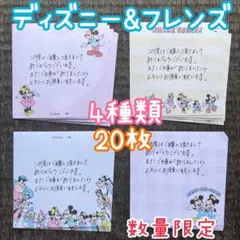 ディズニー&フレンズ
この度はご購入頂きまして
ありがとうございます。
またご縁がありましたら
よろしくお願い致します。
この度はご購入頂きまして
ありがとうございます。
またご縁がありましたら
よろしくお願い致します。
4種類
20枚
この度はご購入頂きまして
ありがとうございます。
またご縁がありましたら
よろしくお願い致します。
この度はご購入頂きまして
ありがとうございます。
またご縁がありましたら
よろしくお願い致します。
数量限定